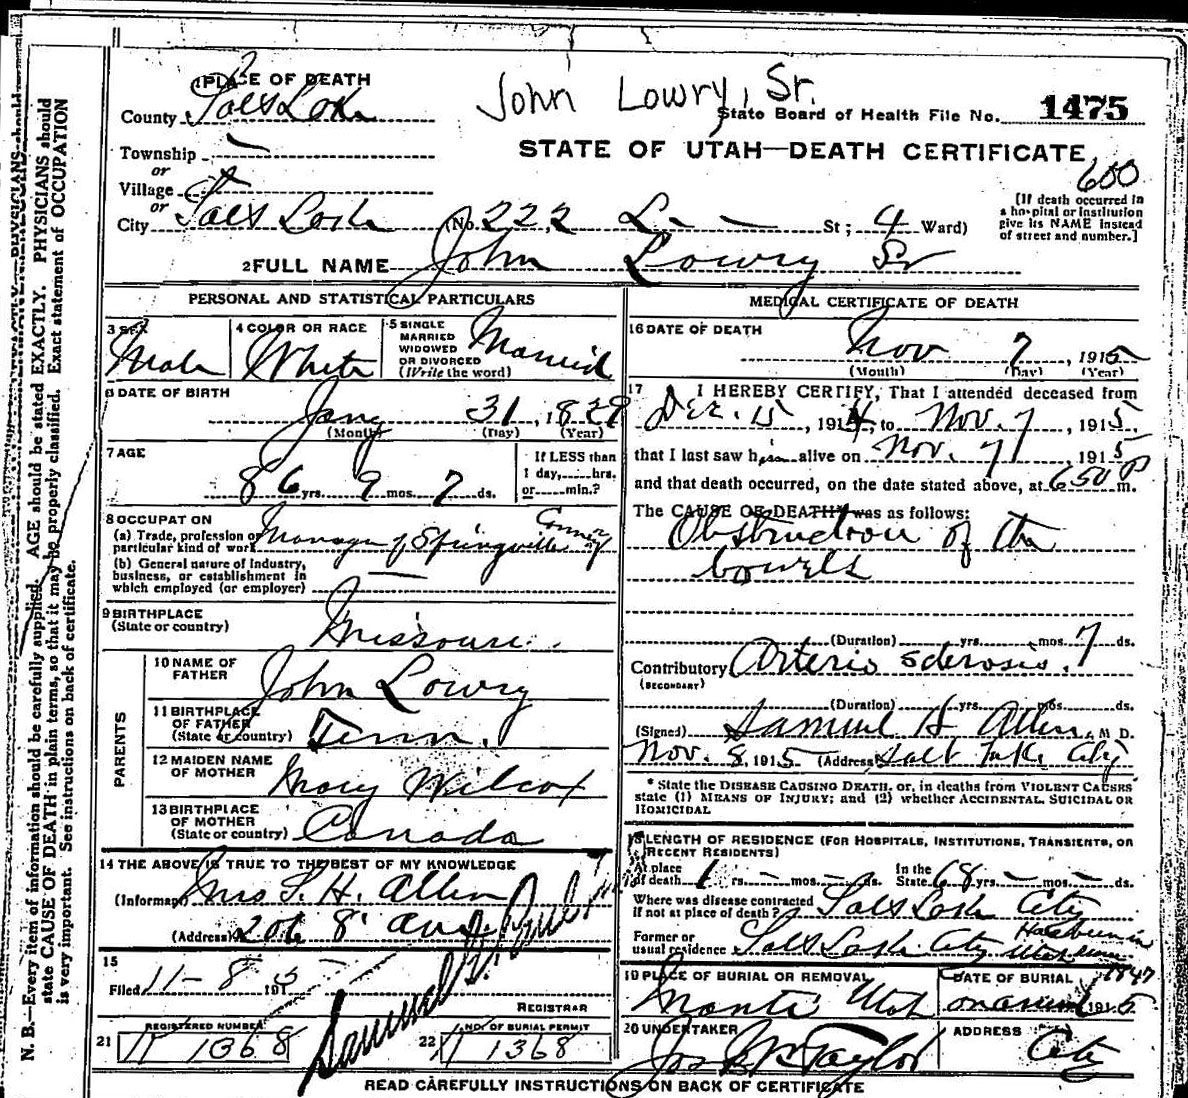 John Lowry, Sr.
1 PLACE OF DEATH
County Salt Lake
State Board of Health File No. 1475
Township
or
STATE OF UTAH—DEATH CERTIFICATE
Village
or
600
City Salt Lake (No. 222 L St; 4 Ward)
[If death occurred in a hospital or institution give its NAME instead of street and number.]
2 FULL NAME John Lowry Sr
PERSONAL AND STATISTICAL PARTICULARS
3 SEX Male
4 COLOR OR RACE White
5 SINGLE MARRIED WIDOWED OR DIVORCED (Write the word) Married
6 DATE OF BIRTH
Jany 31, 1829
(Month) (Day) (Year)
7 AGE
86 yrs. 9 mos. 7 ds.
If LESS than 1 day, hrs. or min.?
8 OCCUPATION
(a) Trade, profession or particular kind of work Manager of Springville
(b) General nature of Industry, business, or establishment in which employed (or employer)
9 BIRTHPLACE
(State or country) Missouri
PARENTS
10 NAME OF FATHER John Lowry
11 BIRTHPLACE OF FATHER (State or country) Tenn.
12 MAIDEN NAME OF MOTHER Mary Wilcox
13 BIRTHPLACE OF MOTHER (State or country) Canada
14 THE ABOVE IS TRUE TO THE BEST OF MY KNOWLEDGE
(Informant) Mrs S. H. Allen
(Address) 206 8' Ave
15
Filed 11-8 1915
Samuel G. Paul
REGISTRAR
21 REGISTERED NUMBER 1368
22 NO. OF BURIAL PERMIT 1368
MEDICAL CERTIFICATE OF DEATH
16 DATE OF DEATH
Nov 7, 1915
(Month) (Day) (Year)
17 I HEREBY CERTIFY, That I attended deceased from
Dec. 15, 1914, to Nov. 7, 1915,
that I last saw him alive on Nov. 7, 1915
and that death occurred, on the date stated above, at 650 P m.
The CAUSE OF DEATH was as follows:
Obstruction of the
bowels
(Duration) yrs. mos. 7 ds.
Contributory Arterio sclerosis.
(SECONDARY)
(Duration) yrs. mos. ds.
(Signed) Samuel H Allen, M D.
Nov. 8, 1915 (Address) Salt Lake City
* State the DISEASE CAUSING DEATH, or, in deaths from VIOLENT CAUSES state (1) MEANS OF INJURY; and (2) whether ACCIDENTAL, SUICIDAL OR HOMICIDAL
18 LENGTH OF RESIDENCE (FOR HOSPITALS, INSTITUTIONS, TRANSIENTS, OR RECENT RESIDENTS)
At place of death 1 yrs. mos. ds. In the State 68 yrs. mos. ds.
Where was disease contracted if not at place of death? Salt Lake City
Former or usual residence Salt Lake City
1847
19 PLACE OF BURIAL OR REMOVAL Manti Utah
DATE OF BURIAL 1915
20 UNDERTAKER Jos Wm Taylor
ADDRESS City
READ CAREFULLY INSTRUCTIONS ON BACK OF CERTIFICATE
N. B.—Every item of information should be carefully supplied. AGE should be stated EXACTLY. PHYSICIANS should
state CAUSE OF DEATH in plain terms, so that it may be properly classified. Exact statement of OCCUPATION
is very important. See instructions on back of certificate.